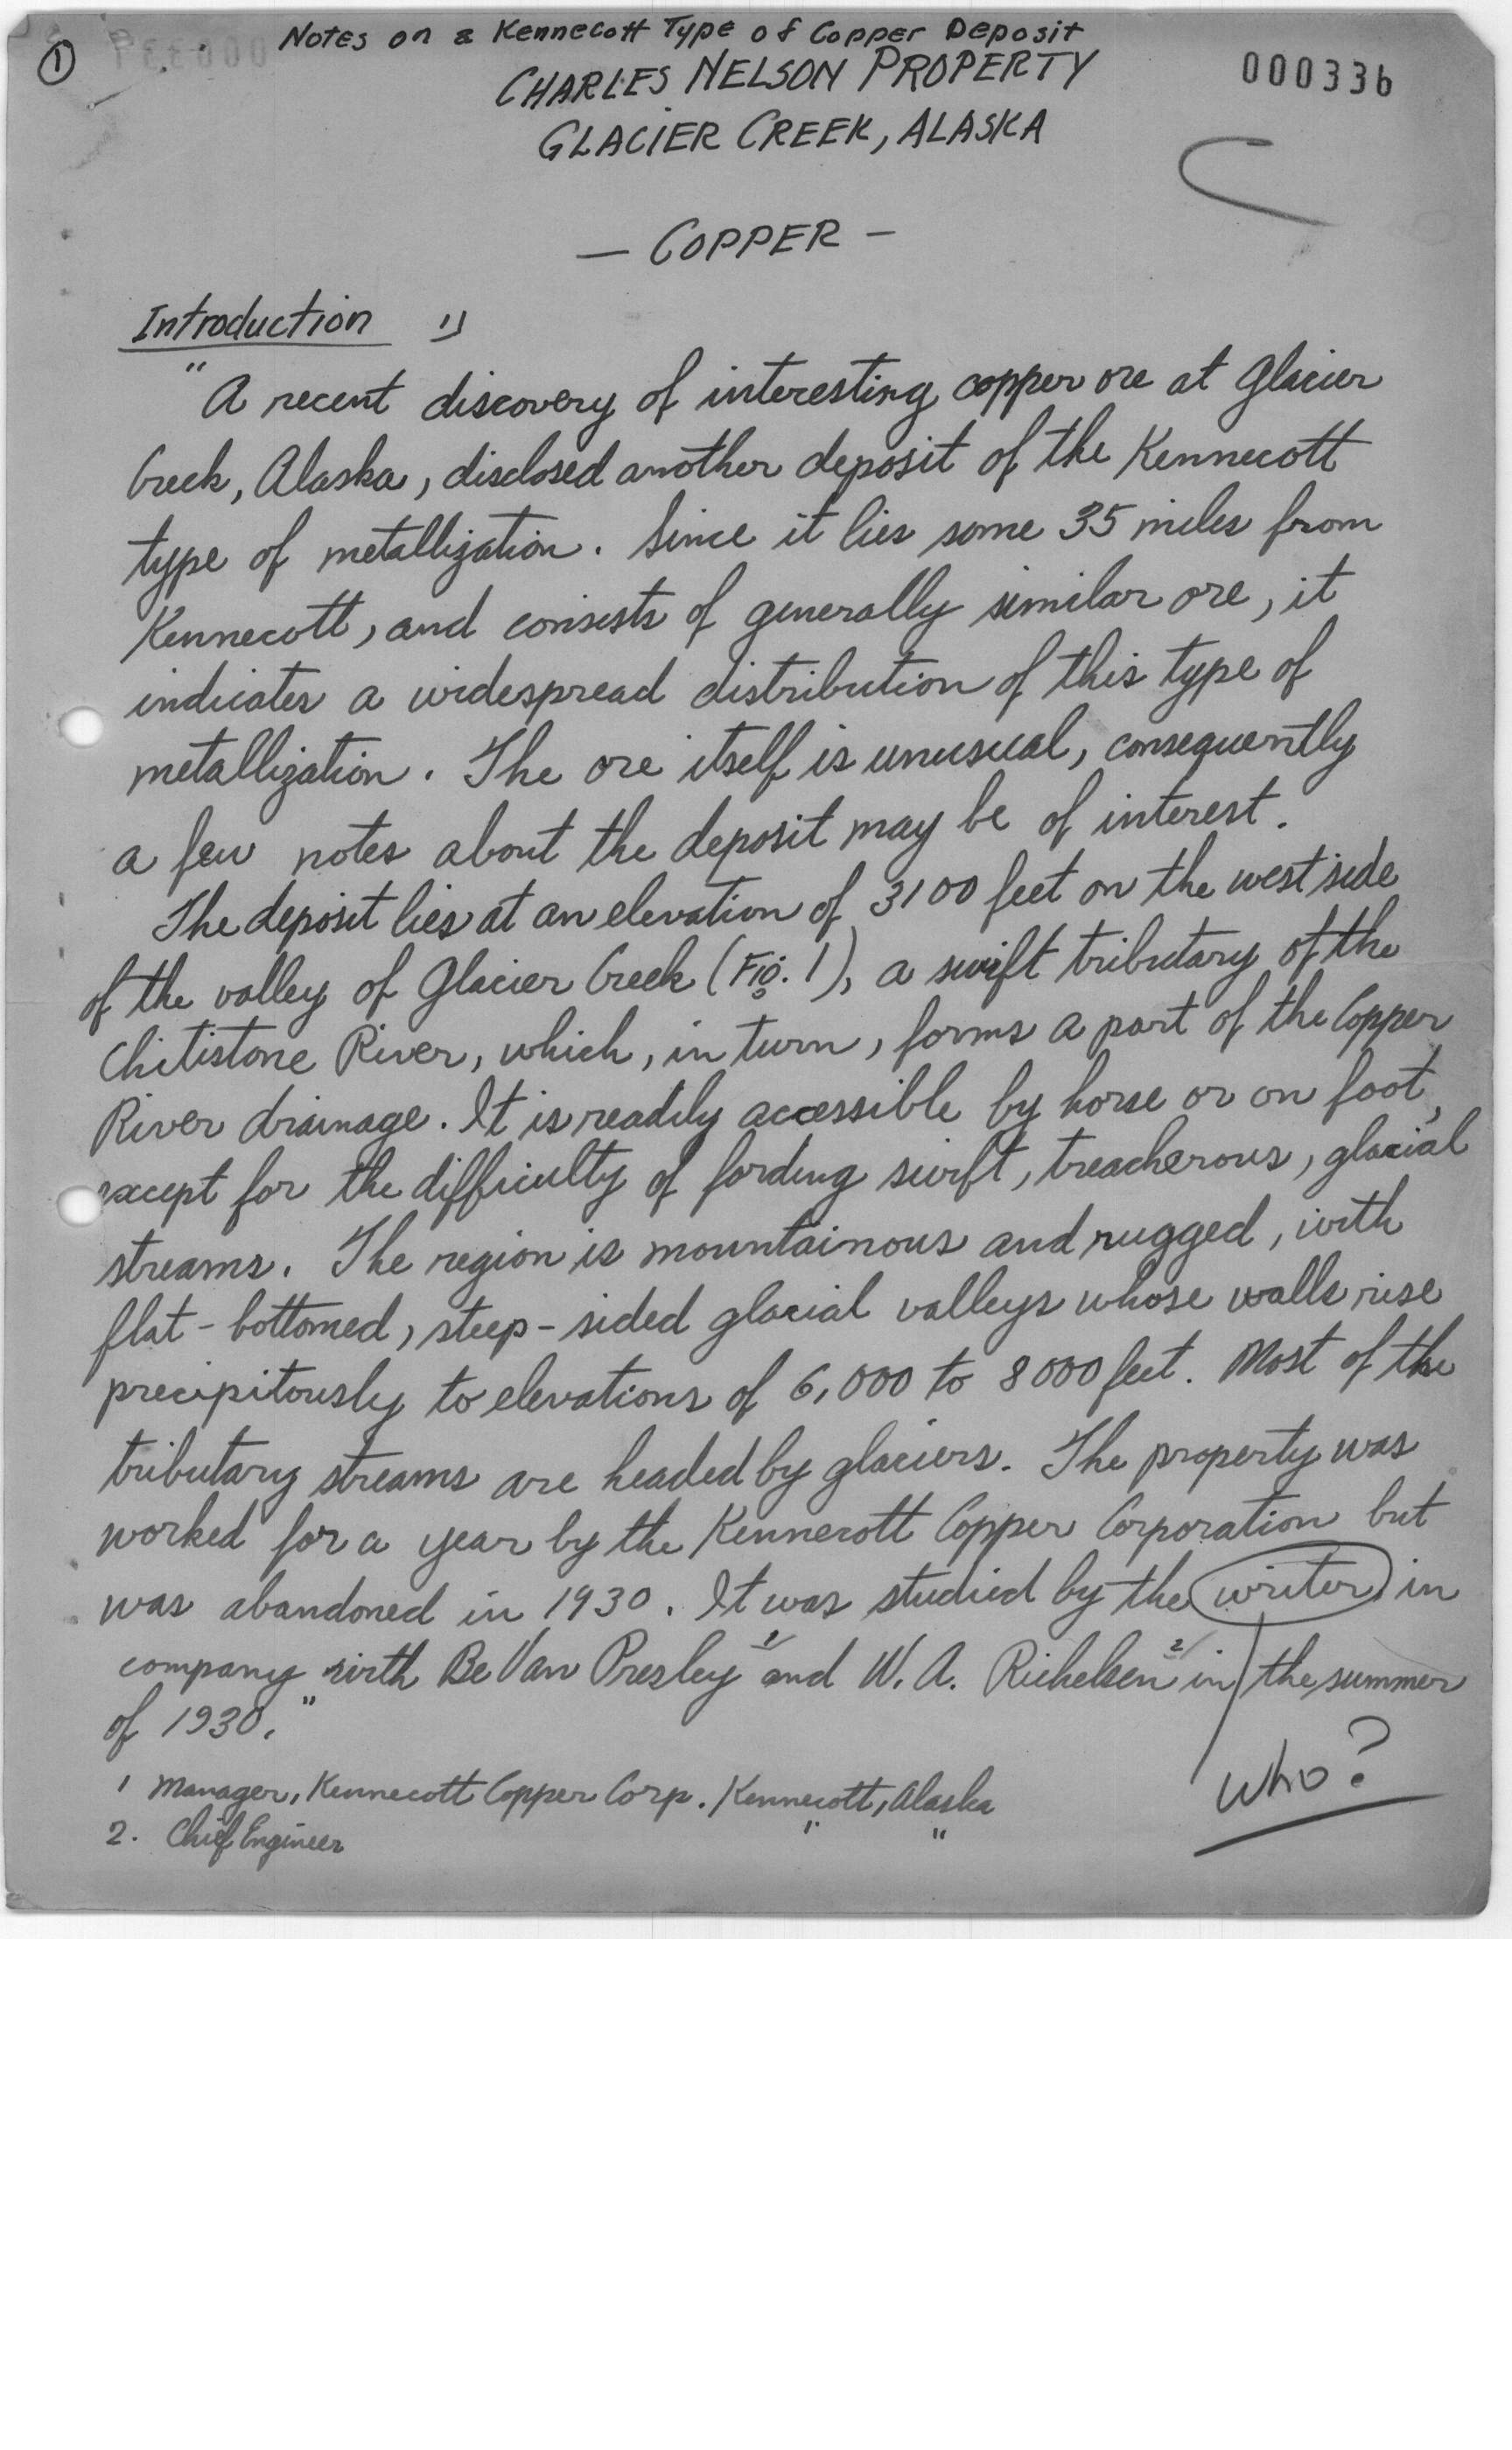 1
Notes on a Kennecott Type of Copper Deposit
CHARLES NELSON PROPERTY
000336
GLACIER CREEK, ALASKA
— COPPER —
Introduction 1)
"A recent discovery of interesting copper ore at Glacier
Creek, Alaska, disclosed another deposit of the Kennecott
type of metallization. Since it lies some 35 miles from
Kennecott, and consists of generally similar ore, it
indicates a widespread distribution of this type of
metallization. The ore itself is unusual, consequently
a few notes about the deposit may be of interest.
The deposit lies at an elevation of 3100 feet on the west side
of the valley of Glacier Creek (Fig. 1), a swift tributary of the
Chitistone River, which, in turn, forms a part of the Copper
River drainage. It is readily accessible by horse or on foot,
except for the difficulty of fording swift, treacherous, glacial
streams. The region is mountainous and rugged, with
flat-bottomed, steep-sided glacial valleys whose walls rise
precipitously to elevations of 6,000 to 8000 feet. Most of the
tributary streams are headed by glaciers. The property was
worked for a year by the Kennecott Copper Corporation but
was abandoned in 1930. It was studied by the writer in
company with BeVan Presley 1/ and W. A. Richelsen 2/ in the summer
of 1930."
Who?
1 Manager, Kennecott Copper Corp. Kennecott, Alaska
2. Chief Engineer " "